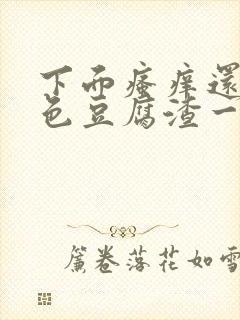 下而瘙痒還
色豆腐渣一
簾卷落花如雪